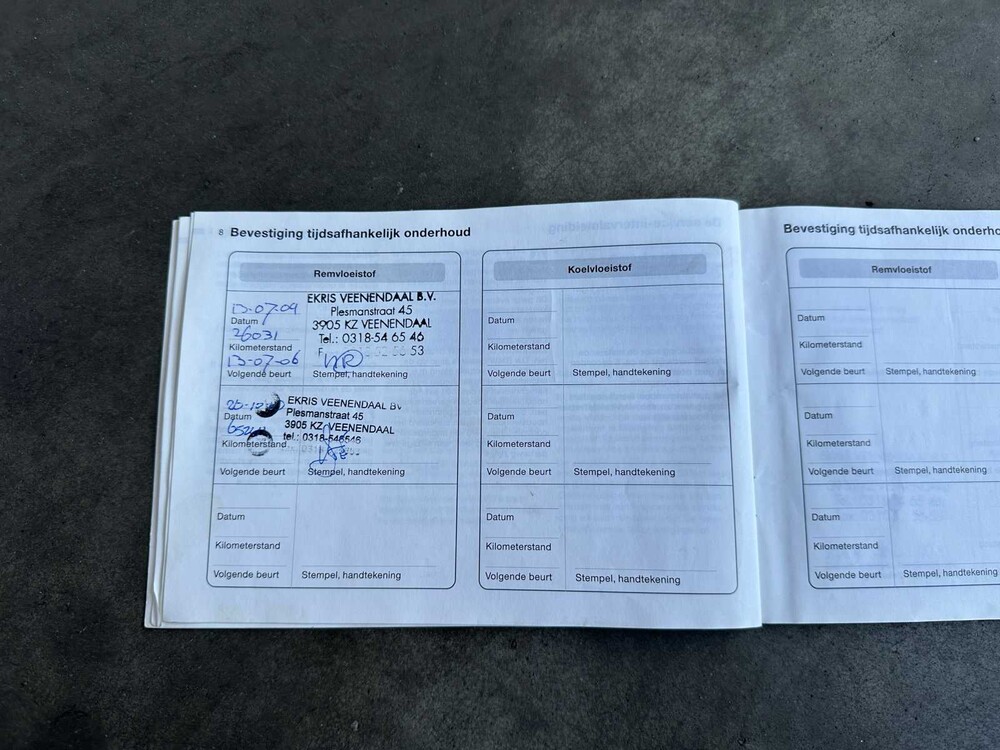 8 Bevestiging tijdsafhankelijk onderhoud
Remvloeistof
13-07-04
Datum
26031
Kilometerstand
13-07-06
Volgende beurt
EKRIS VEENENDAAL B.V.
Plesmanstraat 45
3905 KZ VEENENDAAL
Tel.: 0318-54 65 46
F 53
Stempel, handtekening
Datum
Kilometerstand
Volgende beurt
EKRIS VEENENDAAL BV
Plesmanstraat 45
3905 KZ VEENENDAAL
tel.: 0318-546546
Stempel, handtekening
Datum
Kilometerstand
Volgende beurt
Stempel, handtekening
Koelvloeistof
Datum
Kilometerstand
Volgende beurt
Stempel, handtekening
Datum
Kilometerstand
Volgende beurt
Stempel, handtekening
Datum
Kilometerstand
Volgende beurt
Stempel, handtekening
Bevestiging tijdsafhankelijk onderho
Remvloeistof
Datum
Kilometerstand
Volgende beurt
Stempel, handtekening
Datum
Kilometerstand
Volgende beurt
Stempel, handtekening
Datum
Kilometerstand
Volgende beurt
Stempel, handtekening